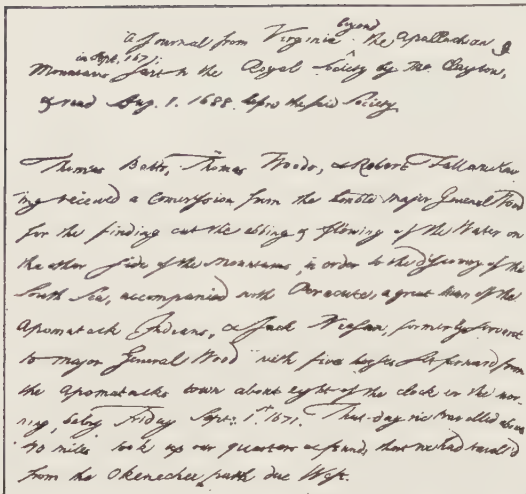 A Journal from Virginia beyond the Apallachian
Mountains in Sept. 1671. Sent to the Royal Society by Mr Clayton,
& read Aug. 1. 1688. before the said Society
Thomas Batts, Thomas Woods, & Robert Fallam hav-
ing received a Commission from the honble Major General Wood
for the finding out the ebbing & flowing of the Water on
the other side of the Mountains, in order to the discovery of the
South Sea, accompanied with Perecute, a great man of the
Apomatack Indians, & Jack Neasan, formerly servant
to Major General Wood with five horses set forward from
the Apomatacks town about eight of the clock in the mor-
ning, being Friday Sept. 1st 1671. That day we travelled above
40 miles took up our quarters & found that we had travell'd
from the Okenechee path due West.